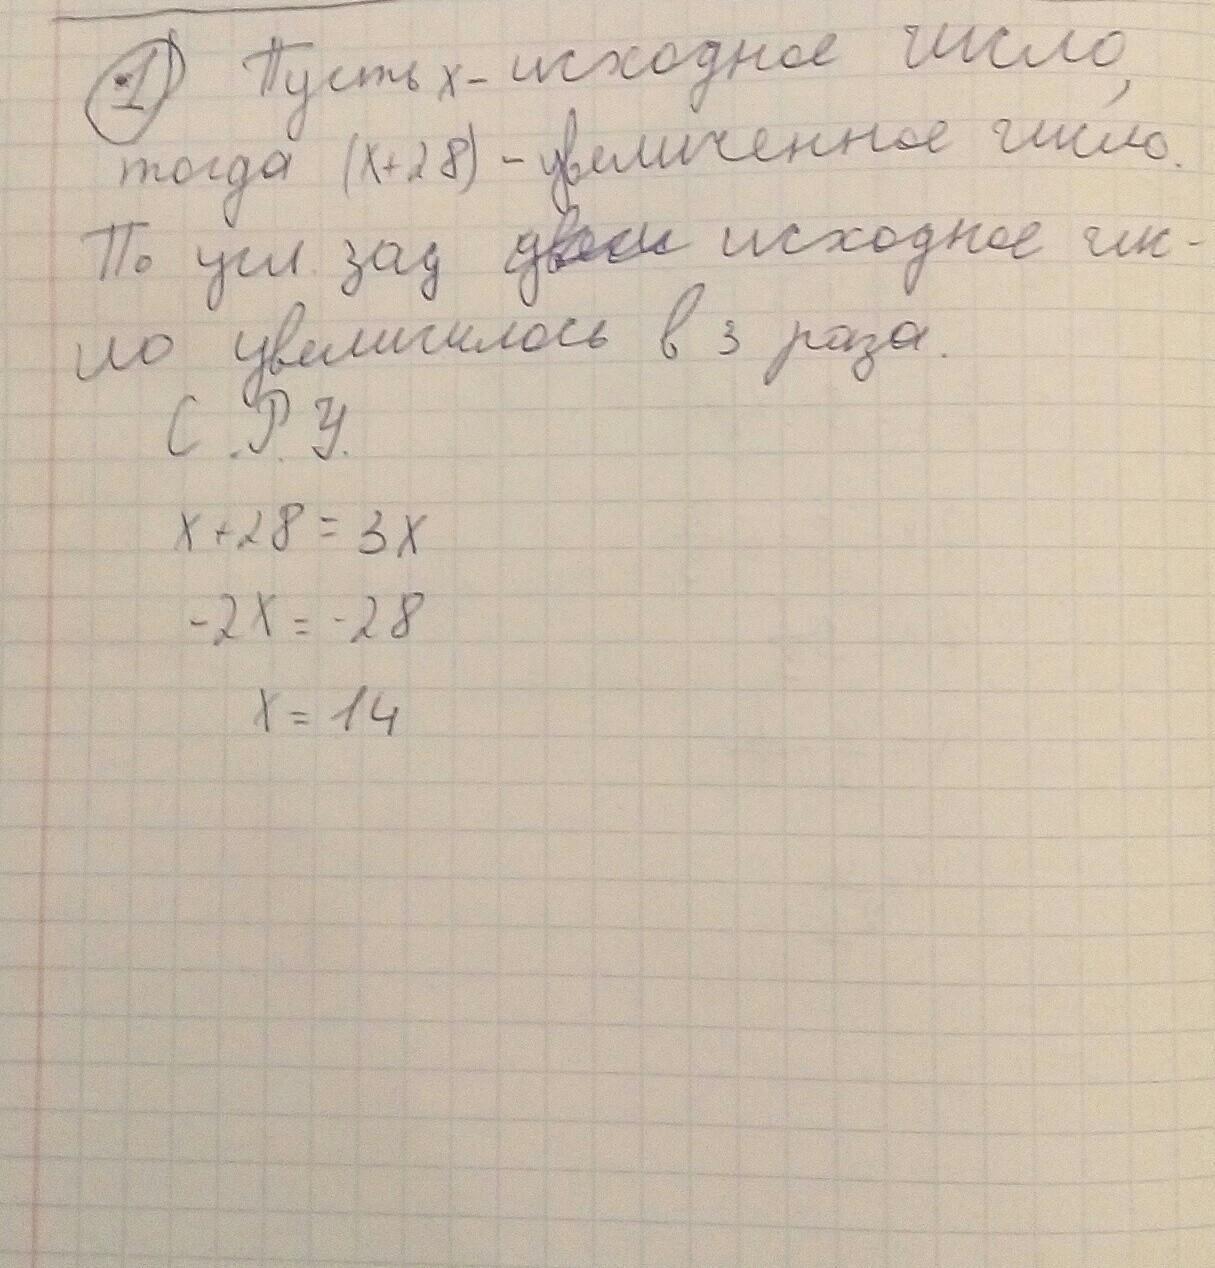 1 Пусть x - исходное число,
тогда (x+28) - увеличенное число.
По усл. зад исходное чис-
ло увеличилось в 3 раза.
С.Р.У.
x+28=3x
-2x=-28
x=14